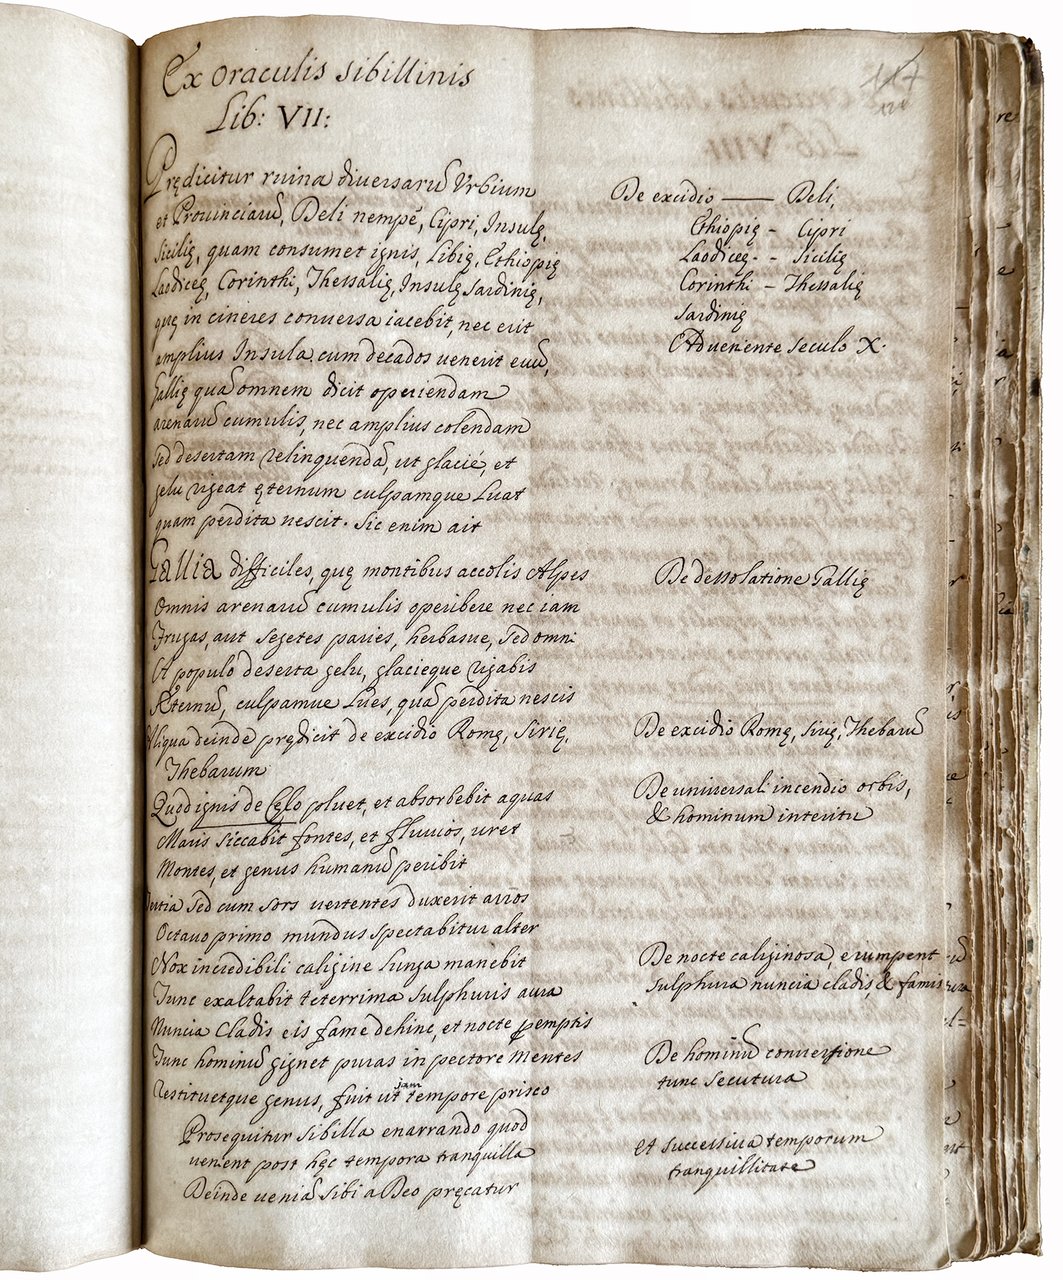 Ex oraculis sibillinis
Lib: VII:
117
Prędicitur ruina diversarũ Vrbium
et Prouinciarũ, Deli nempè, Cipri, Insulę,
Sicilię, quam consumet ignis, Libię, Ethiopię
Laodiceę, Corinthi, Thessalię, Insulę Sardinię,
quę in cineres conuersa iacebit, nec erit
amplius Insula cum decados uenerit euũ,
Gallię quã omnem dicit operiendam
arenarũ cumulis, nec amplius colendam
sed desertam relinquendã, ut glacié, et
gelu rigeat ęternum culpamque Luat
quam perdita nescit. Sic enim ait
De excidio — Deli,
Ethiopię - Cipri
Laodiceę - - Sicilię
Corinthi - Thessalię
Sardinię
Adueniente seculo X.
Gallia difficiles, quę montibus accolis Alpes
Omnis arenarũ cumulis operibere nec iam
Frugas, aut segetes paries, herbasue, sed omni
Et populo deserta gelu, glacieque rigabis
Æternũ, culpamue Lues, quã perdita nescis
Aliqua deinde prędicit de excidio Romę, Sirię,
Thebarum
Quod ignis de Celo pluet, et absorbebit aquas
Maris siccabit fontes, et fluuios, uret
Montes, et genus humanũ peribit
sed cum sors uertentes duxerit annos
Octauo primo mundus spectabitur alter
Nox incredibili caligine Lunga manebit
Tunc exaltabit teterrima sulphuris aura
Nuncia Cladis eis fame dehinc, et nocte pemptis
Tunc hominũ gignet puras in pectore mentes
Restituetque genus, fuit ut iam tempore prisco
Prosequitur sibilla enarrando quod
uenient post hęc tempora tranquilla
Deinde ueniã sibi a Deo pręcatur
De dessolatione Gallię
De excidio Romę, Sirię, Thebarũ
De uniuersali incendio orbis,
& hominum interitu
De nocte caliginosa, erumpent
sulphura nuncia cladis, & famis
De hominũ conuersione
tunc secutura
et successiua temporum
tranquillitate